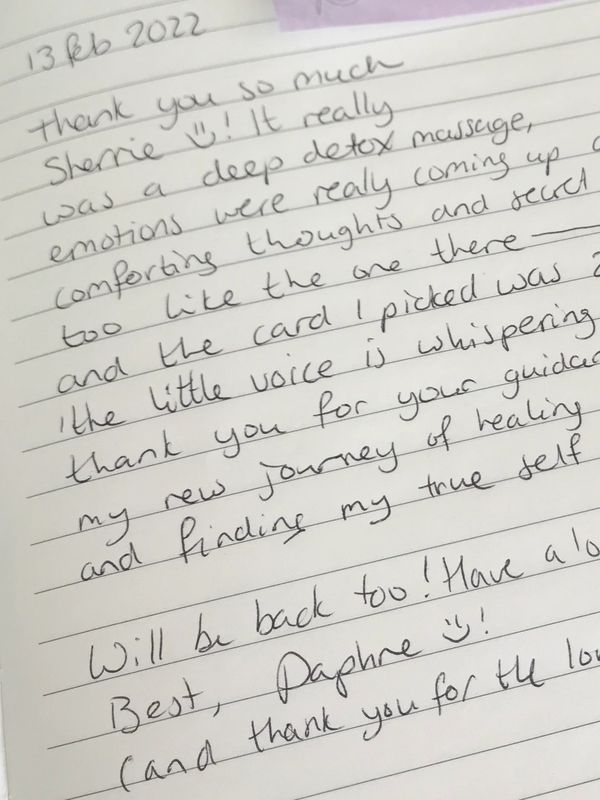 13 feb 2022
thank you so much
Sherrie ! It really
was a deep detox massage,
emotions were realy coming up
comforting thoughts and secret
too like the one there —
and the card I picked was
'the little voice is whispering
thank you for your
my new journey of healing
and finding my true self
Will be back too! Have a
Best, Daphne !
(and thank you for the